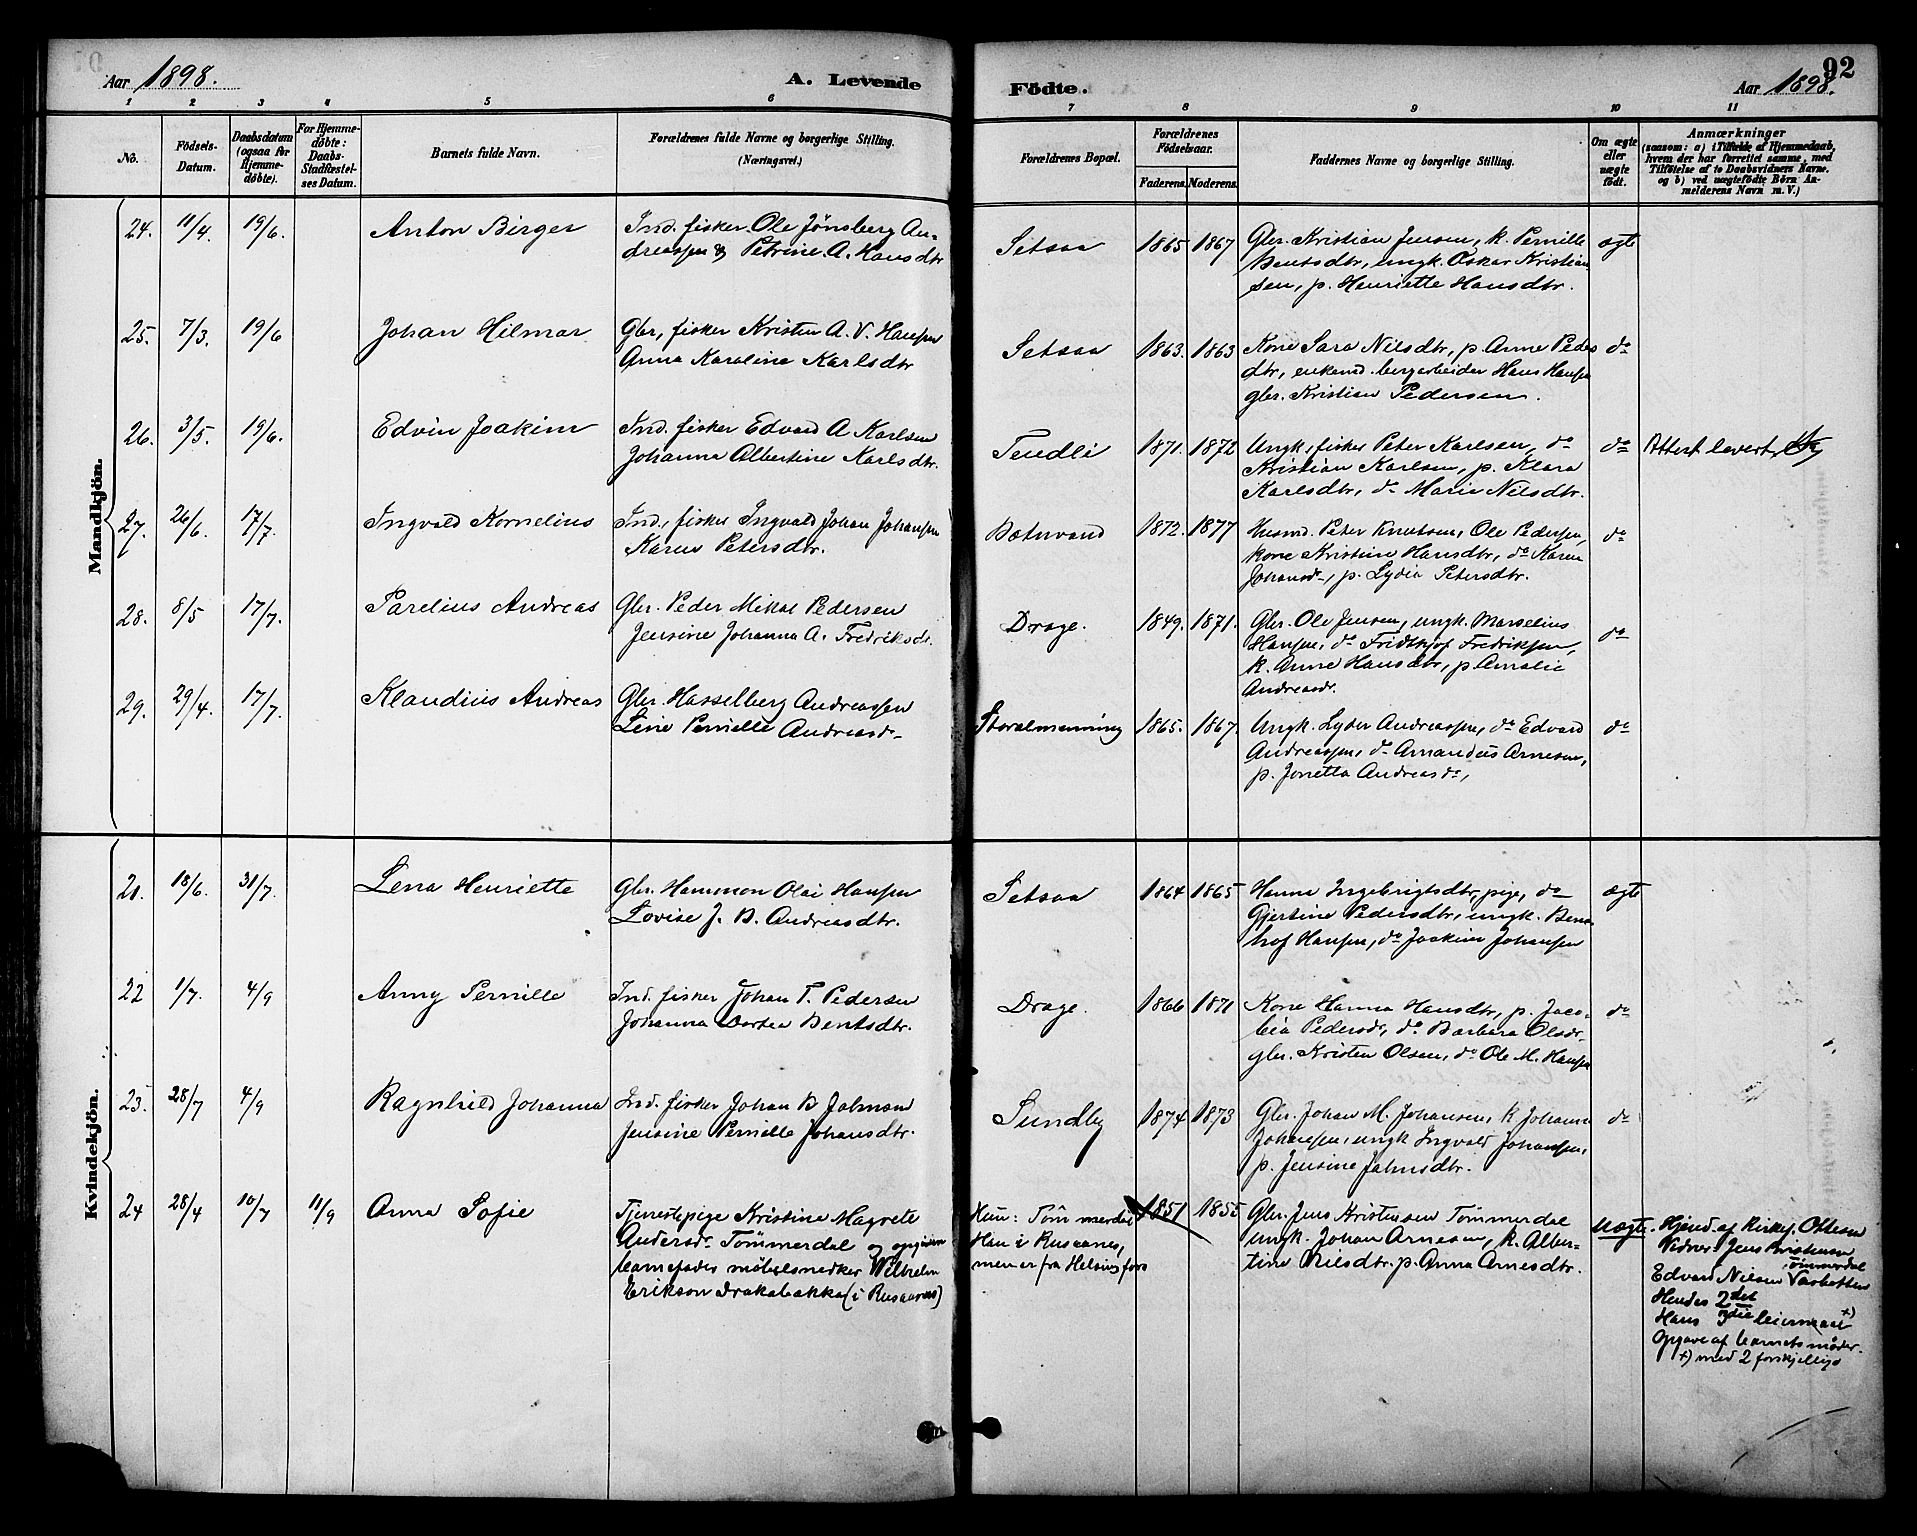 Aar 1898. A. Levende Födte. Aar 1898. 92
1 2 3 4 5 6 7 8 9 10 11
No.
Födsels-
Datum.
Daabsdatum
(ogsaa for
Hjemme-
döbte).
For Hjemme-
döbte:
Daabs-
Stadfæstel-
ses Datum.
Barnets fulde Navn.
Forældrenes fulde Navne og borgerlige Stilling.
(Næringsvei.)
Forældrenes Bopæl.
Forældrenes
Födselsaar.
Faderens. Moderens.
Faddernes Navne og borgerlige Stilling.
Om ægte
eller
uægte
födt.
Anmærkninger
(saasom: a) i Tilfælde af Hjemmedaab,
hvem der har forrettet samme, med
Tilföielse af to Daabsvidners Navne.
og b) ved uægtefödte Börn An-
melderens Navn m. V.)
Mandkjön.
24. 11/4. 19/6. Anton Birger
Ind. fisker Ole Jönsberg An-
dreassen & Petrine A. Hansdtr
Setsaa 1865 1867
Gbr. Kristian Jensen, k. Pernille
Bentsdtr, ungk. Oskar Kristian
sen, p. Henriette Hansdtr.
ægte
25. 7/3. 19/6 Johan Hilmar
Gbr, fisker Kristen A. V. Hansen
Anna Karoline Karlsdtr
Setsaa 1863. 1863
Kone Sara Nilsdtr, p. Anne Peders
dtr, enkemd. bergarbeider Hans Hansen
gbr. Kristian Pedersen.
do
26. 3/5. 19/6. Edvin Joakim
Ind. fisker Edvard A Karlsen
Johanna Albertine Karlsdtr.
Tendli 1871. 1872
Ungk, fisker Peter Karlsen, do
Kristian Karlsen, p. Klara
Karlsdtr, do Marie Nilsdtr.
do Attest levert
27. 26/6. 17/7. Ingvald Kornelius
Ind., fisker Ingvald Johan Johansen
Karen Petersdtr.
Botnvand 1872. 1877
Husmd. Peter Knutsen, Ole Pedersen,
kone Kristine Hansdtr, do Karen
Johansdr, p. Lydia Petersdtr.
do
28. 8/5 17/7. Parelius Andreas
Gbr. Peder Mikal Pedersen
Jensine Johanna A. Fredriksdr.
Drage. 1849. 1871.
Gbr. Ole Jensen, ungk. Marselius
Hansen, do Fridthjof Fredriksen,
k. Anne Hansdtr, p. Amalie
Andreasdr.
do
29. 29/4. 17/7. Klaudius Andreas
Gbr. Hasselberg Andreassen
Line Pernille Andreasdr
Storalmenning 1865. 1867.
Ungk. Lyder Andreassen, do Edvard
Andreassen, do Amandus Arnesen,
p. Jonetta Andreasdr,
do
Kvindekjön.
21. 18/6. 31/7. Lena Henriette
Gbr. Hammon Olai Hansen
Lovise J. B. Andreasdtr.
Setsaa 1864 1865
Hanna Ingebrigtsdtr, pige, do
Gjertine Pedersdtr, ungk. Bern
hof Hansen, do Joakim Johansen
ægte
22 1/7. 4/9 Anny Pernille
Ind. fisker Johan T. Pedersen
Johanna Dortea Bentsdtr.
Drage. 1866 1871
Kone Hanna Hansdtr, p. Jaco-
bia Pedersdr, do Barbara Olsdr
gbr. Kristen Olsen, do Ole M. Hansen
do
23. 28/7 4/9 Ragnhild Johanna
Ind. fisker Johan B Jalmsen
Jensine Pernille Johansdtr.
Sundby 1874 1873
Gbr. Johan M. Johansen, k Johanna
Johansen, ungk Ingvald Johansen,
p. Jensine Jalmsdtr.
do
24 28/4 10/7 11/9 Anna Sofie
Tjenestepige Kristine Magrete
Andersdr Tömmerdal og opgiven
barnefader möbelsnedker Wilhelm
Erikson Drakabakka (i Rusaanes)
Hun: Tömmerdal
Han i Rusaanes,
men er fra Helsingfors
1851 1855
Gbr. Jens Kristensen Tömmerdal
ungk. Johan Arnesen, k. Alber-
tine Nilsdtr. p. Anna Arnesdtr.
Uægte.
Hjemd. af Kirkes. Ottesen
Vidner: Jens Kristensen
Tömmerdal
Edvard Nilsen Vasbotten
Hendes 2det
Hans 3die leiermaal +)
Opgave af barnets moder.
+) med 2 forskjellige